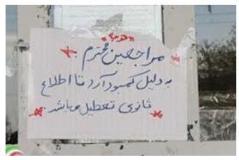 توجه
مراجعین محترم
به دلیل کمبود آرد تا اطلاع
ثانوی تعطیل میباشد.